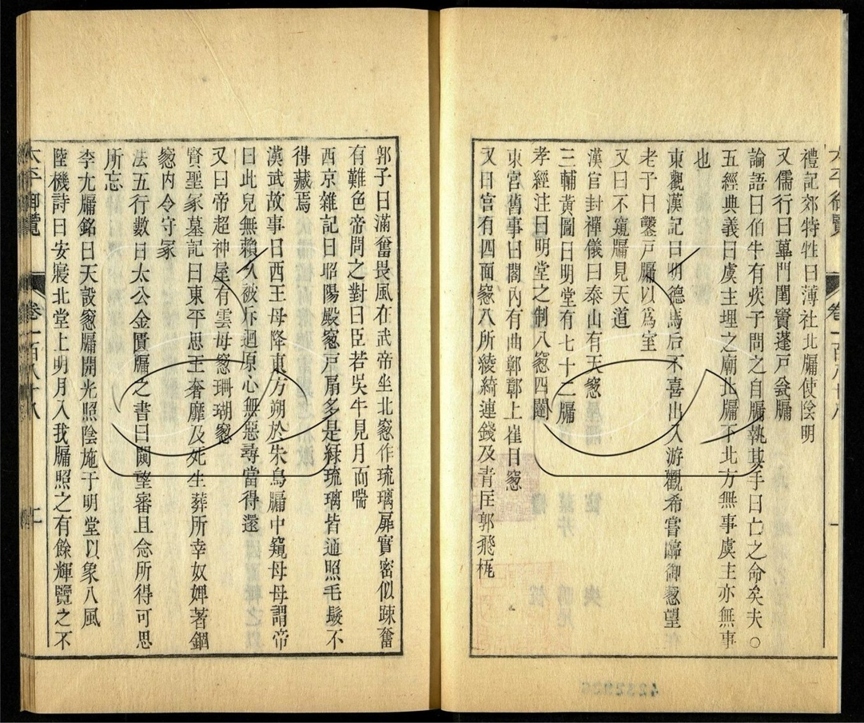 太平御覽 卷一百八十八
禮記郊特牲曰薄社北牖使陰明
又儒行曰蓽門閨竇蓬戸瓮牖
論語曰伯牛有疾子問之自牖執其手曰亡之命矣夫○
五經典義曰虞主埋之廟北牖下北方無事虞主亦無事
也
東觀漢記曰明德馬后不喜出入游觀希嘗臨御窓望
老子曰鑿戸牖以爲室
又曰不窺牖見天道
漢官封禪儀曰泰山有天窓
三輔黃圖曰明堂有七十二牖
孝經注曰明堂之制八窓四闥
東宮舊事曰閤內有曲鄣鄣上雀目窓
又曰宮有四面窓八所綾綺連錢及青匡郭飛栀
郭子曰滿奮畏風在武帝坐北窓作琉璃扉實密似踈奮
有難色帝問之對曰臣若吳牛見月而喘
西京雜記曰昭陽殿窓戸扇多是緑琉璃皆通照毛髮不
得藏焉
漢武故事曰西王母降東方朔於朱鳥牖中窺母母謂帝
曰此兒無賴久被斥逈原心無惡尋當得還
又曰帝起神屋有雲母窓珊瑚窓
賢聖冢墓記曰東平思王奢靡及死生葬所幸奴婢著銅
窓内令守冢
法五行數曰太公金匱牖之書曰闚望審且念所得可思
所忘
李尤牖銘曰天設窓牖開光照陰施于明堂以象八風
陸機詩曰安寢北堂上明月入我牖照之有餘輝覽之不
太平御覽 卷一百八十八